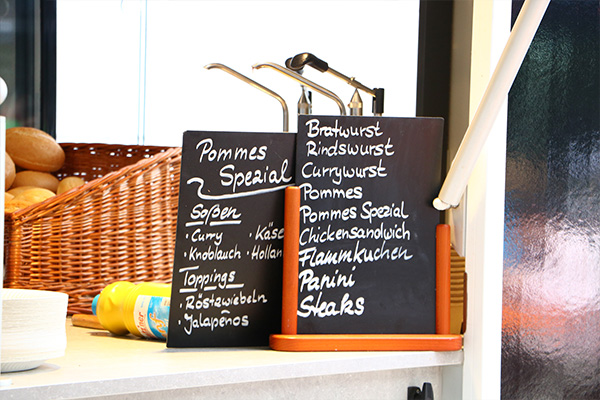 Pommes
Spezial
Soßen
· Curry
· Knoblauch
Toppings
· Röstzwiebeln
· Jalapeños
Bratwurst
Rindswurst
Currywurst
Pommes
Pommes Spezial
Chickensandwich
Flammkuchen
Panini
Steaks